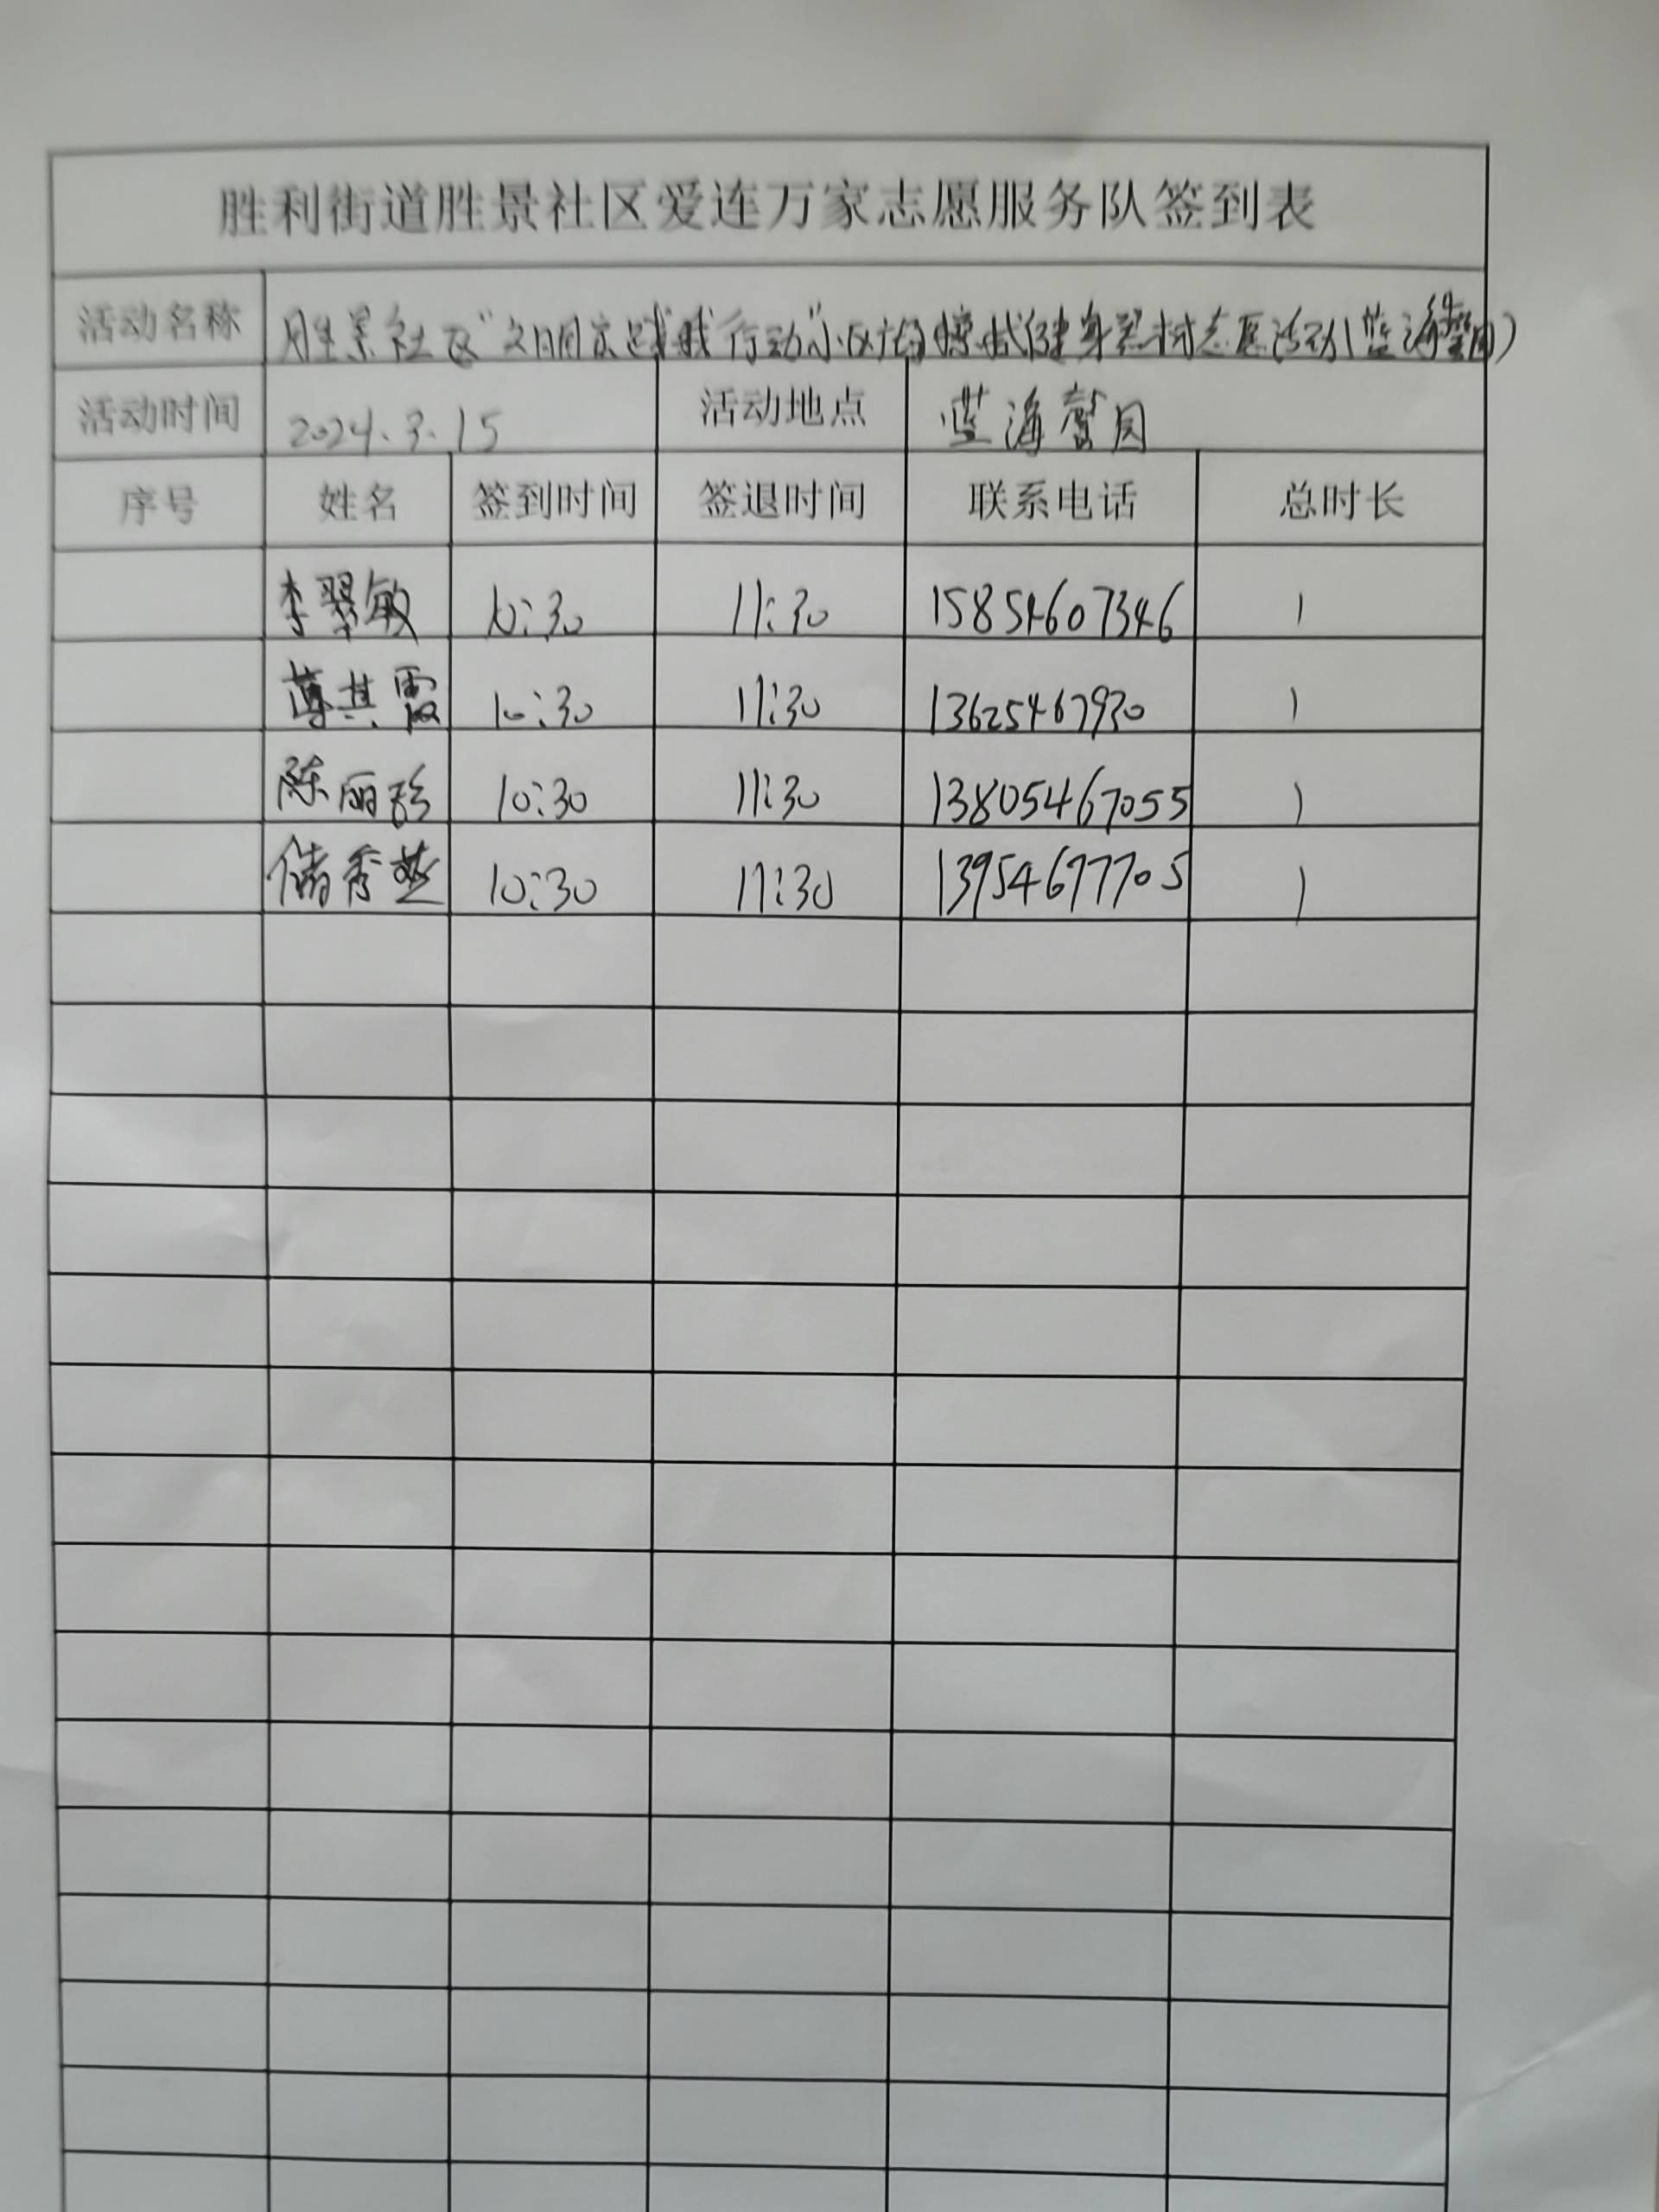 胜利街道胜景社区爱连万家志愿服务队签到表
活动名称 胜景社区"文明实践我行动"小区内擦拭健身器材志愿活动(蓝海馨园)
活动时间 2024.3.15 活动地点 蓝海馨园
序号 姓名 签到时间 签退时间 联系电话 总时长
李翠敏 10:30 11:30 15854607346 1
薄其霞 10:30 11:30 13625467920 1
陈丽珍 10:30 11:30 13805467055 1
储秀芝 10:30 11:30 13954677705 1